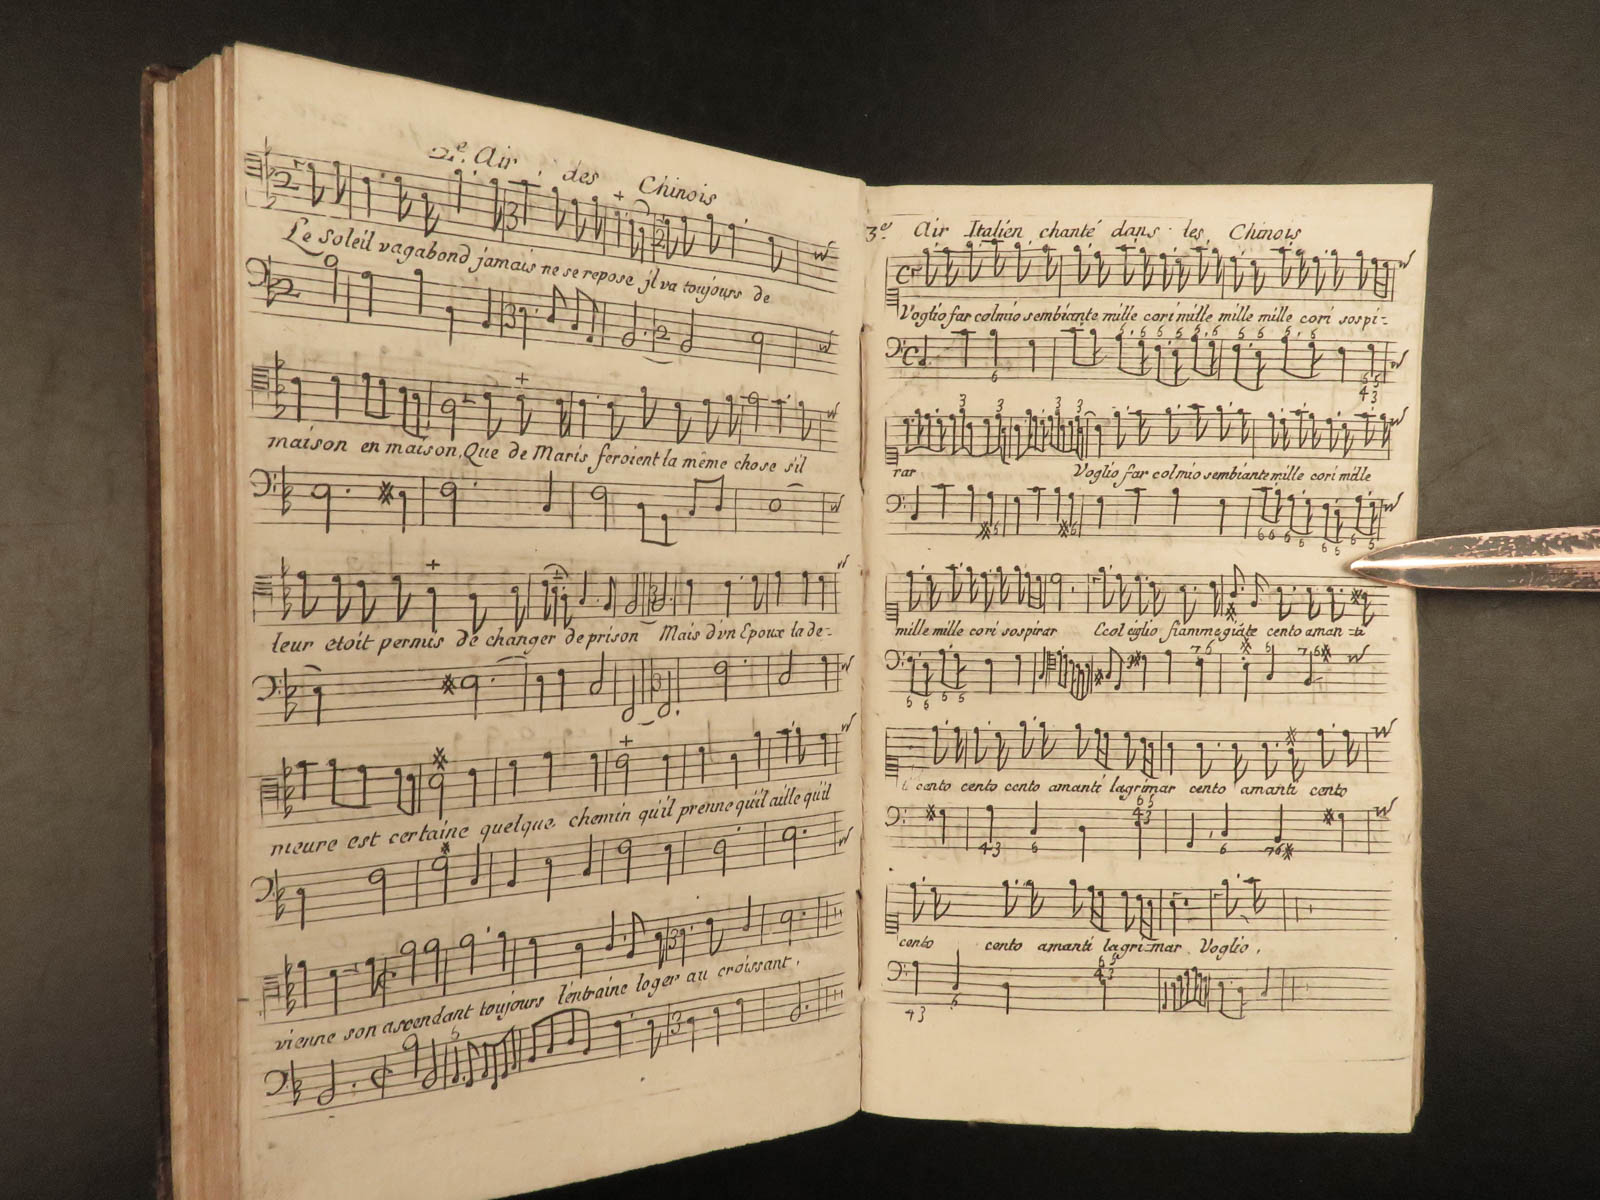 2.e Air des Chinois
Le Soleil vagabond jamais ne se repose jl va toujours de
maison en maison, Que de Maris feroient la même chose s'il
leur etoit permis de changer de prison Mais d'vn Epoux la de-
meure est certaine quelque chemin qu'il prenne qu'il aille qu'il
vienne son ascendant toujours l'entraine loger au croissant.
3.e Air Italien chanté dans les Chinois
Voglio far col mio sembiante mille cori mille mille mille cori sospi-
rar Voglio far col mio sembiante mille cori mille
mille mille cori sospirar E col ciglio fiammegiate cento aman-ti
cento cento cento amanti lagrimar cento amanti cento
cento cento amanti lagri-mar Voglio.